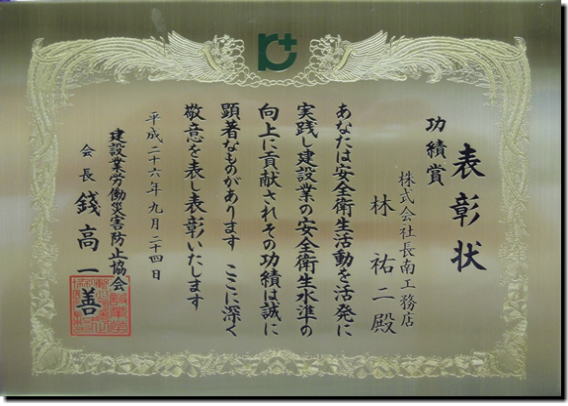 表彰状
功績賞
株式会社長南工務店
林祐二殿
あなたは安全衛生活動を活発に
実践し建設業の安全衛生水準の
向上に貢献されその功績は誠に
顕著なものがあります ここに深く
敬意を表し表彰いたします
平成二十六年九月二十四日
建設業労働災害防止協会
会長 錢高一善